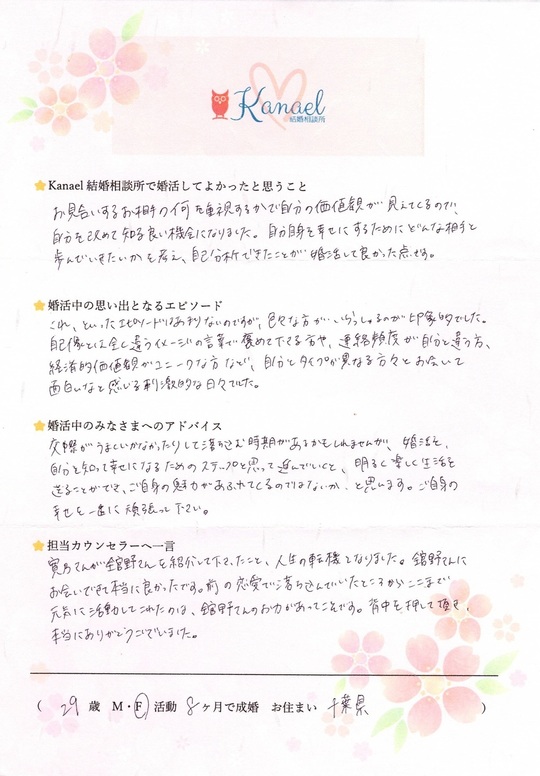 Kanael
結婚相談所
Kanael 結婚相談所で婚活してよかったと思うこと
お見合いするお相手の何を重視するかで自分の価値観が見えてくるので、
自分を改めて知る良い機会になりました。自分自身を幸せにするためにどんな相手と
歩んでいきたいかを考え、自己分析できたことが婚活して良かった点です。
婚活中の思い出となるエピソード
これ、といったエピソードはあまりないのですが、色々な方がいらっしゃるのが印象的でした。
自己像とは全く違うイメージの言葉で褒めて下さる方や、連絡頻度が自分と違う方、
経済的価値観がユニークな方など、自分とタイプが異なる方々とお会いして
面白いなと感じる刺激的な日々でした。
婚活中のみなさまへのアドバイス
交際がうまくいかなかったりして落ち込む時期があるかもしれませんが、婚活を、
自分を知って幸せになるためのステップと思って進んでいくと、明るく楽しく生活を
送ることができ、ご自身の魅力があふれてくるのではないか、と思います。ご自身の
幸せを一番に頑張って下さい。
担当カウンセラーへ一言
さんが舘野さんを紹介して下さったこと、人生の転機となりました。舘野さんに
お会いできて本当に良かったです。前の恋愛で落ち込んでいたところからここまで
元気に活動してこれたのは、舘野さんのお力があってこそです。背中を押して頂き、
本当にありがとうございました。
( 29 歳 M・F 活動 8 ヶ月で成婚 お住まい 千葉県 )